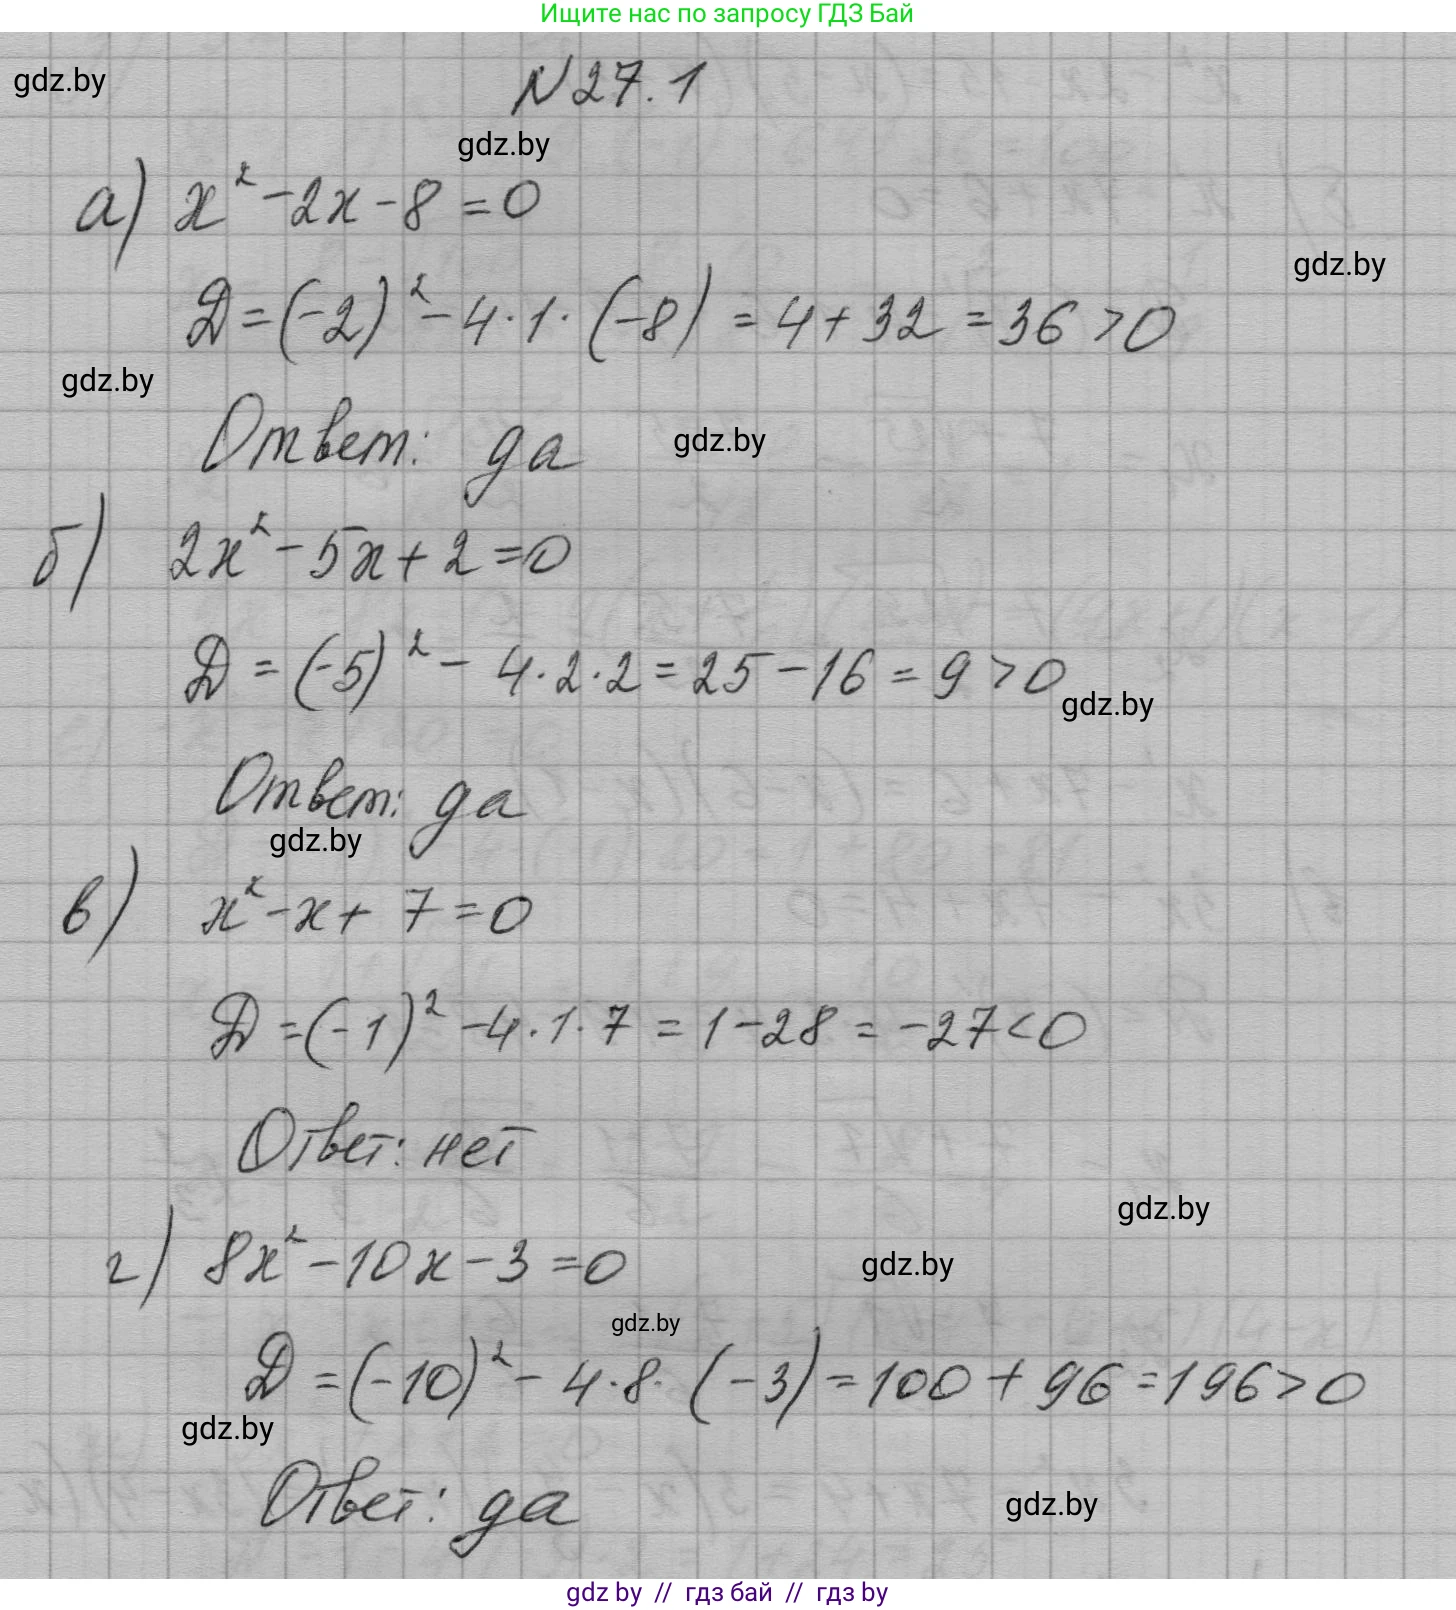 Ищите нас по запросу ГДЗ Бай
gdz.by
N27.1
gdz.by
а) x² - 2x - 8 = 0
gdz.by
D = (-2)² - 4·1·(-8) = 4 + 32 = 36 > 0
gdz.by
Ответ: да
gdz.by
б) 2x² - 5x + 2 = 0
D = (-5)² - 4·2·2 = 25 - 16 = 9 > 0
gdz.by
Ответ: да
gdz.by
в) x² - x + 7 = 0
D = (-1)² - 4·1·7 = 1 - 28 = -27 < 0
Ответ: нет
gdz.by
г) 8x² - 10x - 3 = 0
gdz.by
gdz.by
D = (-10)² - 4·8·(-3) = 100 + 96 = 196 > 0
gdz.by
Ответ: да
gdz.by
gdz by // гдз бай // гдз by